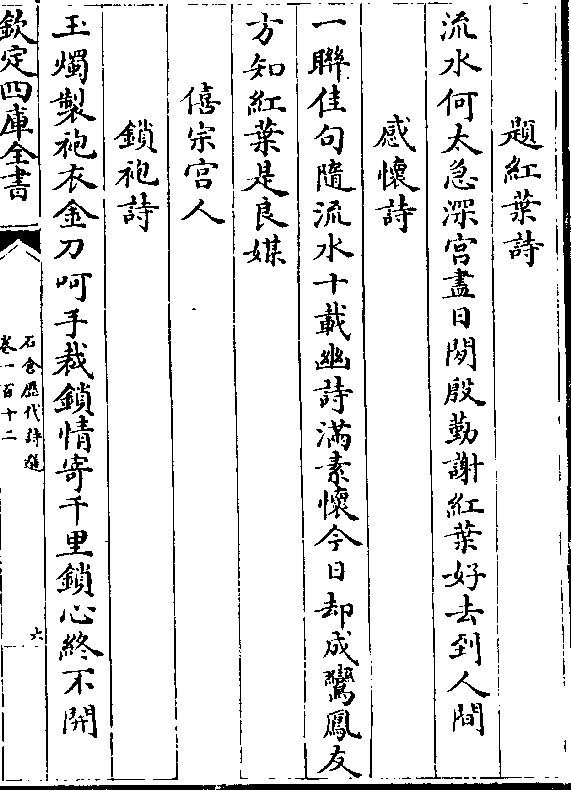 題紅葉詩
流水何太急深宫盡日閒殷勤謝紅葉好去到人間
感懷詩
一聯佳句隨流水十載幽詩滿素懷今日却成鸞鳳友
方知紅葉是良媒
僖宗宫人
鎖袍詩
玉燭製袍衣金刀呵手裁鎖情寄千里鎖心終不開
欽定四庫全書
石倉歷代詩選
卷一百十二
六